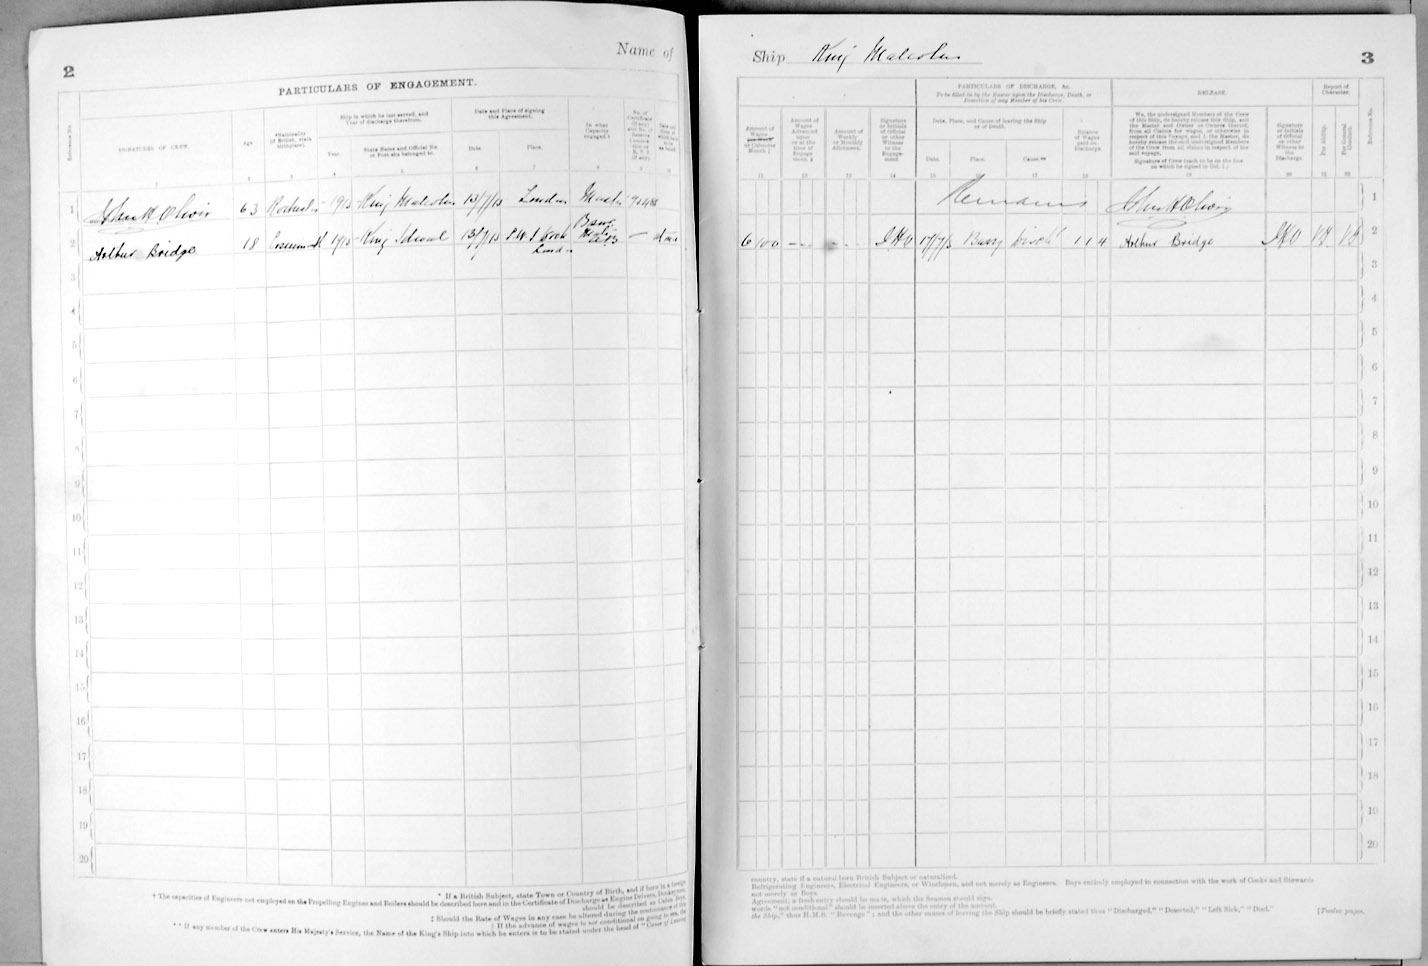 2
Name of
PARTICULARS OF ENGAGEMENT.
Reference No.
SIGNATURES OF CREW.
Age.
*Nationality
(if British, state
birthplace).
Ship in which he last served, and
Year of discharge therefrom.
Year.
State Name and Official No.
or Port she belonged to.
Date and Place of signing
this Agreement.
Date.
Place.
In what
Capacity
engaged.†
1 2 3 4 5 6 7 8 9 10
1 63 1915 King Malcolm 13/7/15 London Master
2 Arthur Bridge 18 1915 King 13/7/15 London
3
4
5
6
7
8
9
10
11
12
13
14
15
16
17
18
19
20
* If a British Subject, state Town or Country of Birth, and if born in a foreign
† The capacities of Engineers not employed on the Propelling Engines and Boilers should be described here and in the Certificate of Discharge as Engine Drivers, Donkeymen,
should be described as Cabin Boys,
‡ Should the Rate of Wages in any case be altered during the continuance of this
‖ If the advance of wages is not conditional on going to sea, the
** If any member of the Crew enters His Majesty's Service, the Name of the King's Ship into which he enters is to be stated under the head of "Cause of Leaving
Ship King Malcolm
3
PARTICULARS OF DISCHARGE, &c.
To be filled in by the Master upon the Discharge, Death, or
Desertion of any Member of his Crew.
RELEASE.
Report of
Character.
Amount of
Wages
or Calendar
Month ‡
Amount of
Wages
Advanced
upon
or at the
time of
Engage-
ment. ‖
Amount of
Weekly
or Monthly
Allotment.
Signature
or Initials
of Official
or other
Witness
to the
Engage-
ment
Date, Place, and Cause of leaving the Ship
or of Death.
Date.
Place.
Cause.**
Balance
of Wages
paid on
Discharge.
We, the undersigned Members of the Crew
of this Ship, do hereby release this ship, and
the Master and Owner or Owners thereof,
from all Claims for wages, or otherwise in
respect of this Voyage, and I, the Master, do
hereby release the said undersigned Members
of the Crew from all claims in respect of the
said voyage.
Signature of Crew (each to be on the line
on which he signed in Col. 1.)
Signature
or Initials
of Official
or other
Witness
to the
Discharge.
For Ability.
For General
Conduct.
Reference No.
11 12 13 14 15 16 17 18 19 20 21 22
Remains 1
6 10 0 17/7/15 Barry Disch 1 1 4 Arthur Bridge VG VG 2
3
4
5
6
7
8
9
10
11
12
13
14
15
16
17
18
19
20
country, state if a natural born British Subject or naturalized.
Refrigerating Engineers, Electrical Engineers, or Winchmen, and not merely as Engineers. Boys entirely employed in connection with the work of Cooks and Stewards
not merely as Boys.
Agreement, a fresh entry should be made, which the Seamen should sign.
words "not conditional" should be inserted above the entry of the amount.
the Ship," thus H.M.S. "Revenge"; and the other causes of leaving the Ship should be briefly stated thus "Discharged," "Deserted," "Left Sick," "Died."
[Twelve pages.